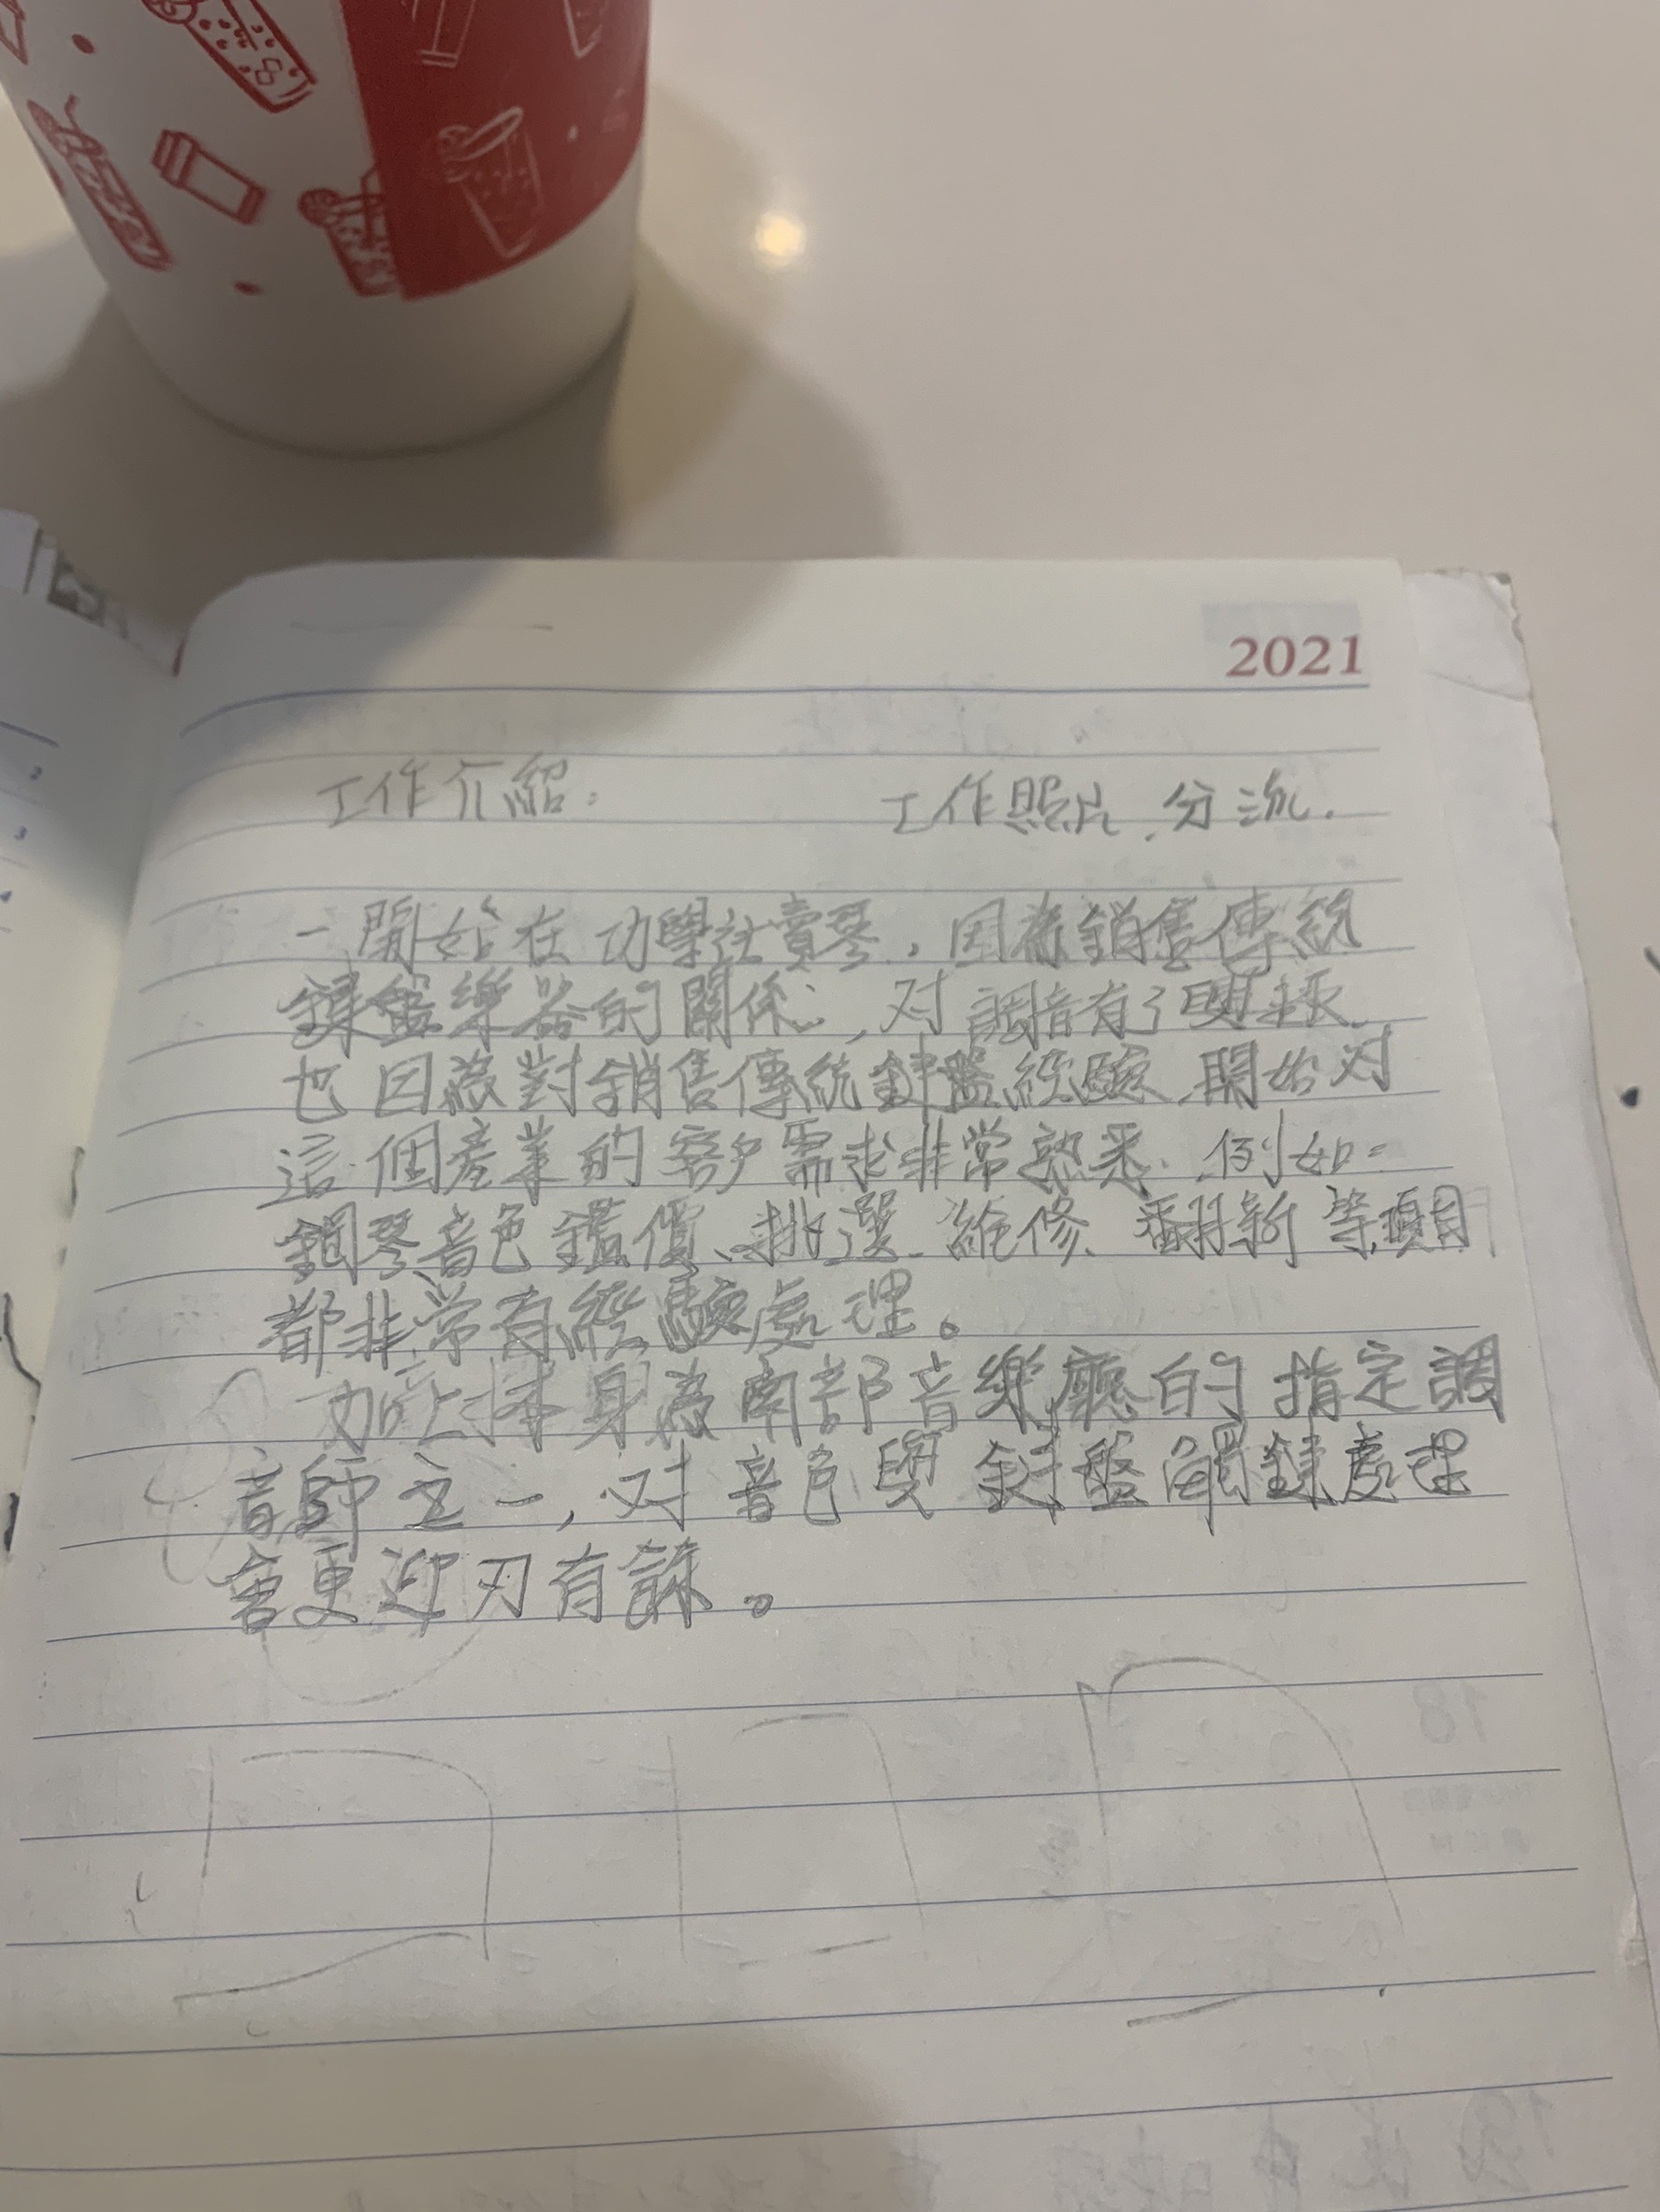 2021
工作介紹: 工作照片、分流.
一開始在功學社賣琴，因為銷售傳統
鍵盤樂器的關係，对調音有了興趣
也因為對銷售傳統鍵盤經驗，開始对
這個產業的客戶需求非常熟悉，例如：
鋼琴音色鑑價、挑選、維修、翻新等項目
都非常有經驗處理。
加上本身為南部音樂廳的指定調
音師之一，对音色與鍵盤觸鍵處理
會更迎刃有餘。